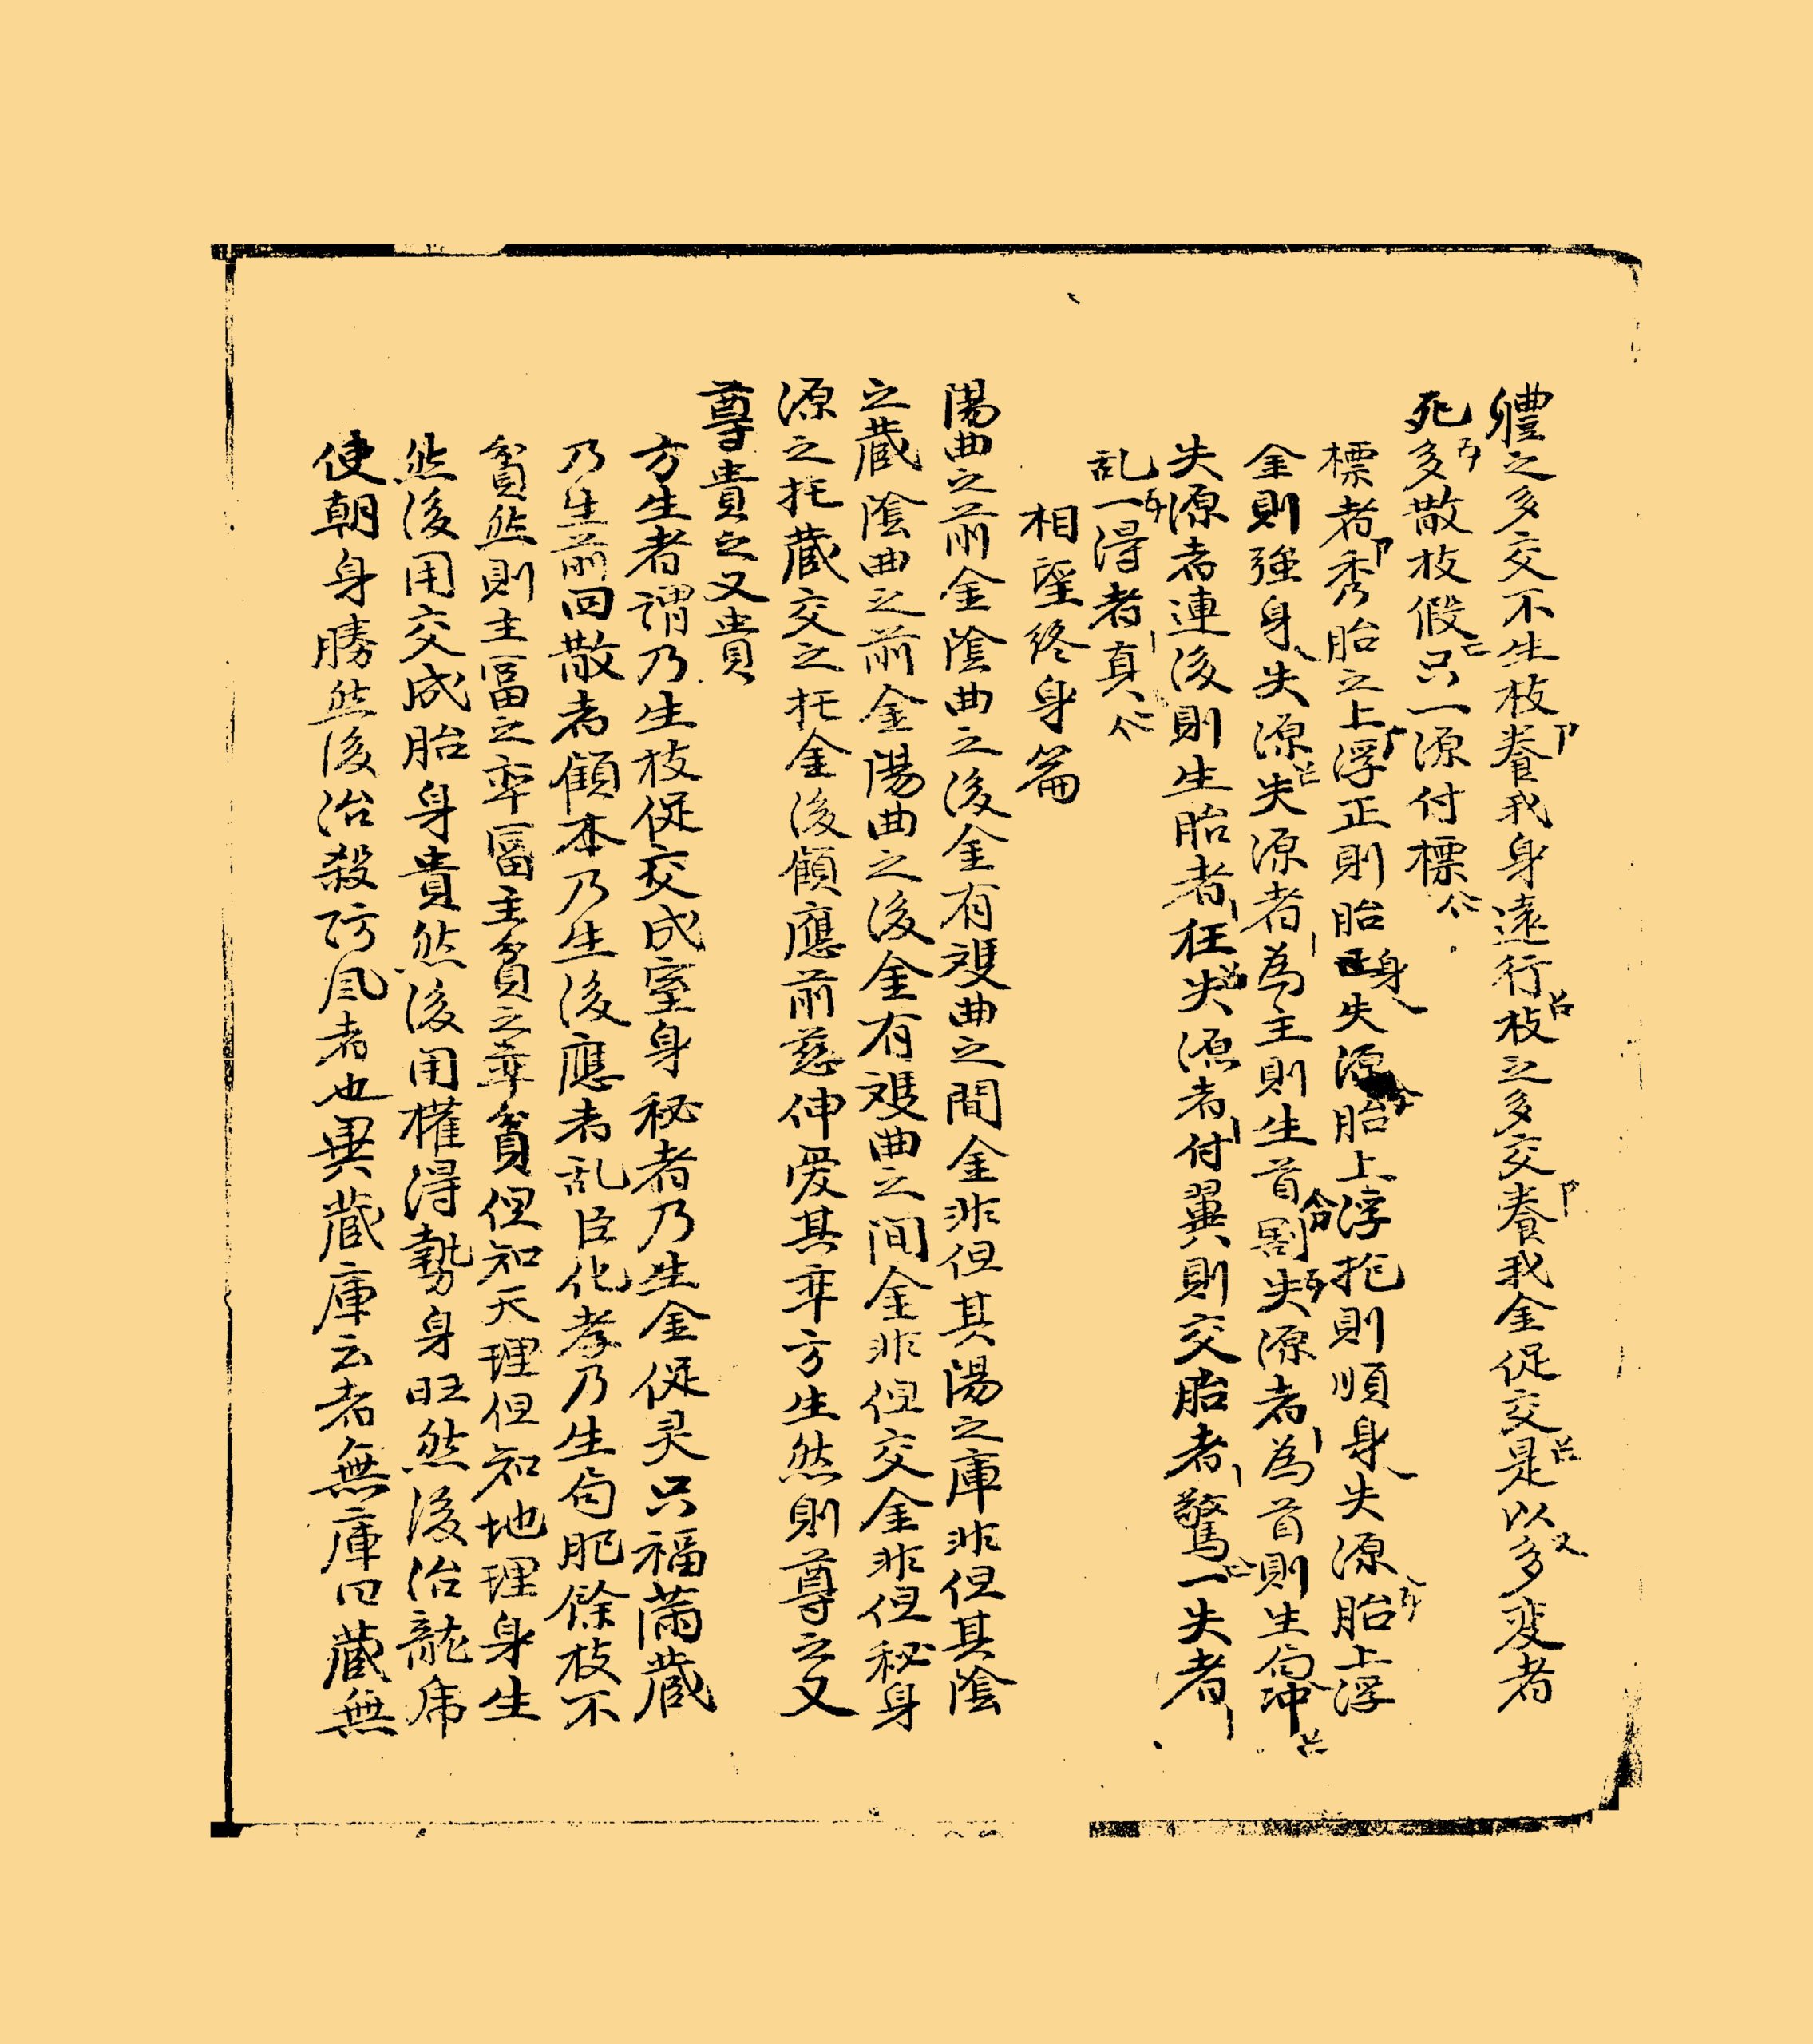 體之多交不生枝養我身遠行枝之多交養我金促交是以多变者
死多散枝假只一源付標
標者秀胎之上浮正則胎身失源胎上浮抱則順身失源胎上浮
金則強身失源失源者為主則生首割失源者為首則生句冲
失源者連後則生胎者狂失源者付翼則交胎者驚一失者
乱一得者真
相望終身篇
陽曲之前金陰曲之後金有䨇曲之間金非但其陽之庫非但其陰
之藏陰曲之前金陽曲之後金有䨇曲之间金非但交金非但秘身
源之托藏交之托金後顧應前慈伸爱其率方生然則尊之又
尊貴之又貴
方生者謂乃生枝促交成室身秘者乃生金促灵只福滿藏
乃生前回散者顧本乃生後應者乱臣化孝乃生句肥餘枝不
貧然則主富之率富主貧之率貧但知天理但知地理身生
然後用交成胎身貴然後用權得勢身旺然後治龍虎
使朝身勝然後治殺防风者也異藏庫云者無庫曰藏無